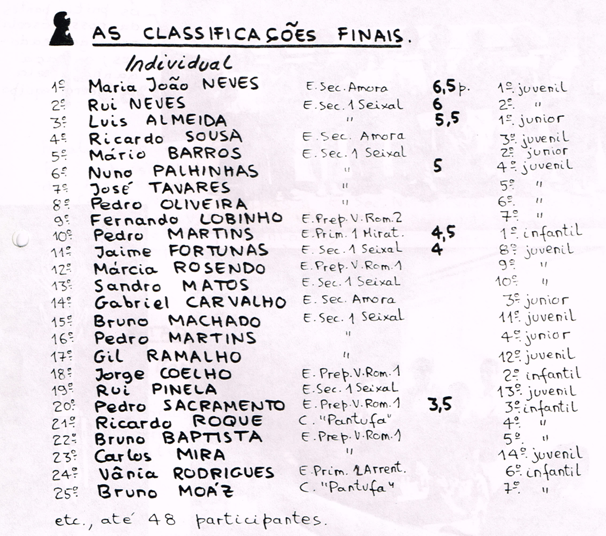 AS CLASSIFICAÇÕES FINAIS.
Individual
1º Maria João NEVES E.Sec. Amora 6,5 p. 1º juvenil
2º Rui NEVES E.Sec.1 Seixal 6 2º "
3º Luis ALMEIDA " 5,5 1º junior
4º Ricardo SOUSA E.Sec. Amora 3º juvenil
5º Mário BARROS E.Sec.1 Seixal 2º junior
6º Nuno PALHINHAS " 5 4º juvenil
7º José TAVARES " 5º "
8º Pedro OLIVEIRA " 6º "
9º Fernando LOBINHO E.Prep.V.Rom.2 7º "
10º Pedro MARTINS E.Prim.1 Mirat. 4,5 1º infantil
11º Jaime FORTUNAS E.Sec.1 Seixal 4 8º juvenil
12º Márcia ROSENDO E.Prep.V.Rom.1 9º "
13º Sandro MATOS E.Sec.1 Seixal 10º "
14º Gabriel CARVALHO E.Sec. Amora 3º junior
15º Bruno MACHADO E.Sec.1 Seixal 11º juvenil
16º Pedro MARTINS " 4º junior
17º Gil RAMALHO " 12º juvenil
18º Jorge COELHO E.Prep.V.Rom.1 2º infantil
19º Rui PINELA E.Sec.1 Seixal 13º juvenil
20º Pedro SACRAMENTO E.Prep.V.Rom.1 3,5 3º infantil
21º Ricardo ROQUE C. "Pantufa" 4º "
22º Bruno BAPTISTA E.Prep.V.Rom.1 5º "
23º Carlos MIRA " 14º juvenil
24º Vânia RODRIGUES E.Prim. 2 Arrent. 6º infantil
25º Bruno MOÁZ C. "Pantufa" 7º "
etc., até 48 participantes.